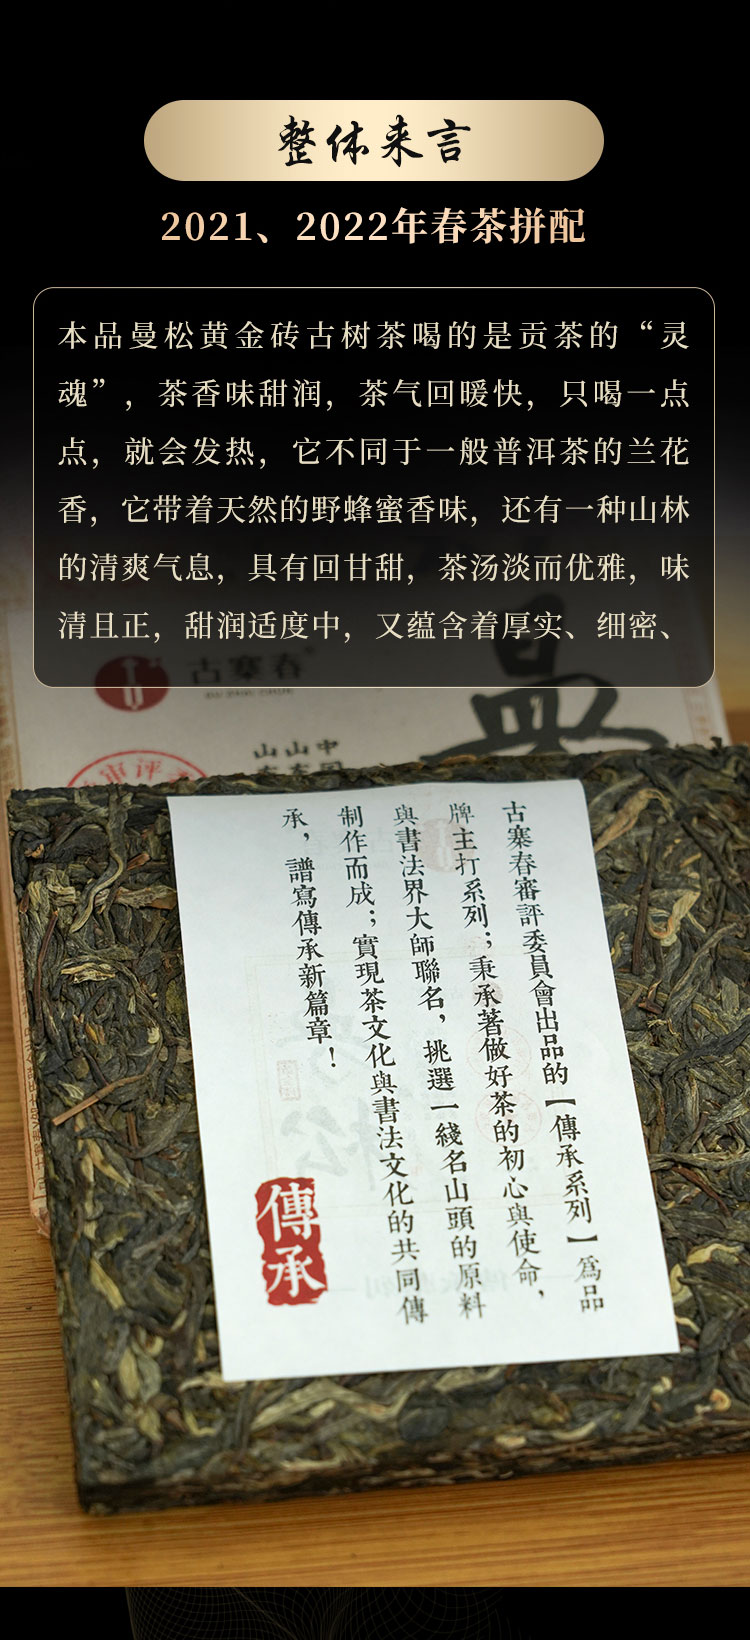 整体来言
2021、2022年春茶拼配
本品曼松黄金砖古树茶喝的是贡茶的“灵
魂”，茶香味甜润，茶气回暖快，只喝一点
点，就会发热，它不同于一般普洱茶的兰花
香，它带着天然的野蜂蜜香味，还有一种山林
的清爽气息，具有回甘甜，茶汤淡而优雅，味
清且正，甜润适度中，又蕴含着厚实、细密、
古寨春
GU ZHAI CHUN
古寨春審評委員會出品的【傳承系列】爲品
牌主打系列；秉承著做好茶的初心與使命，
與書法界大師聯名，挑選一綫名山頭的原料
制作而成；實現茶文化與書法文化的共同傳
承，譜寫傳承新篇章！
傳承